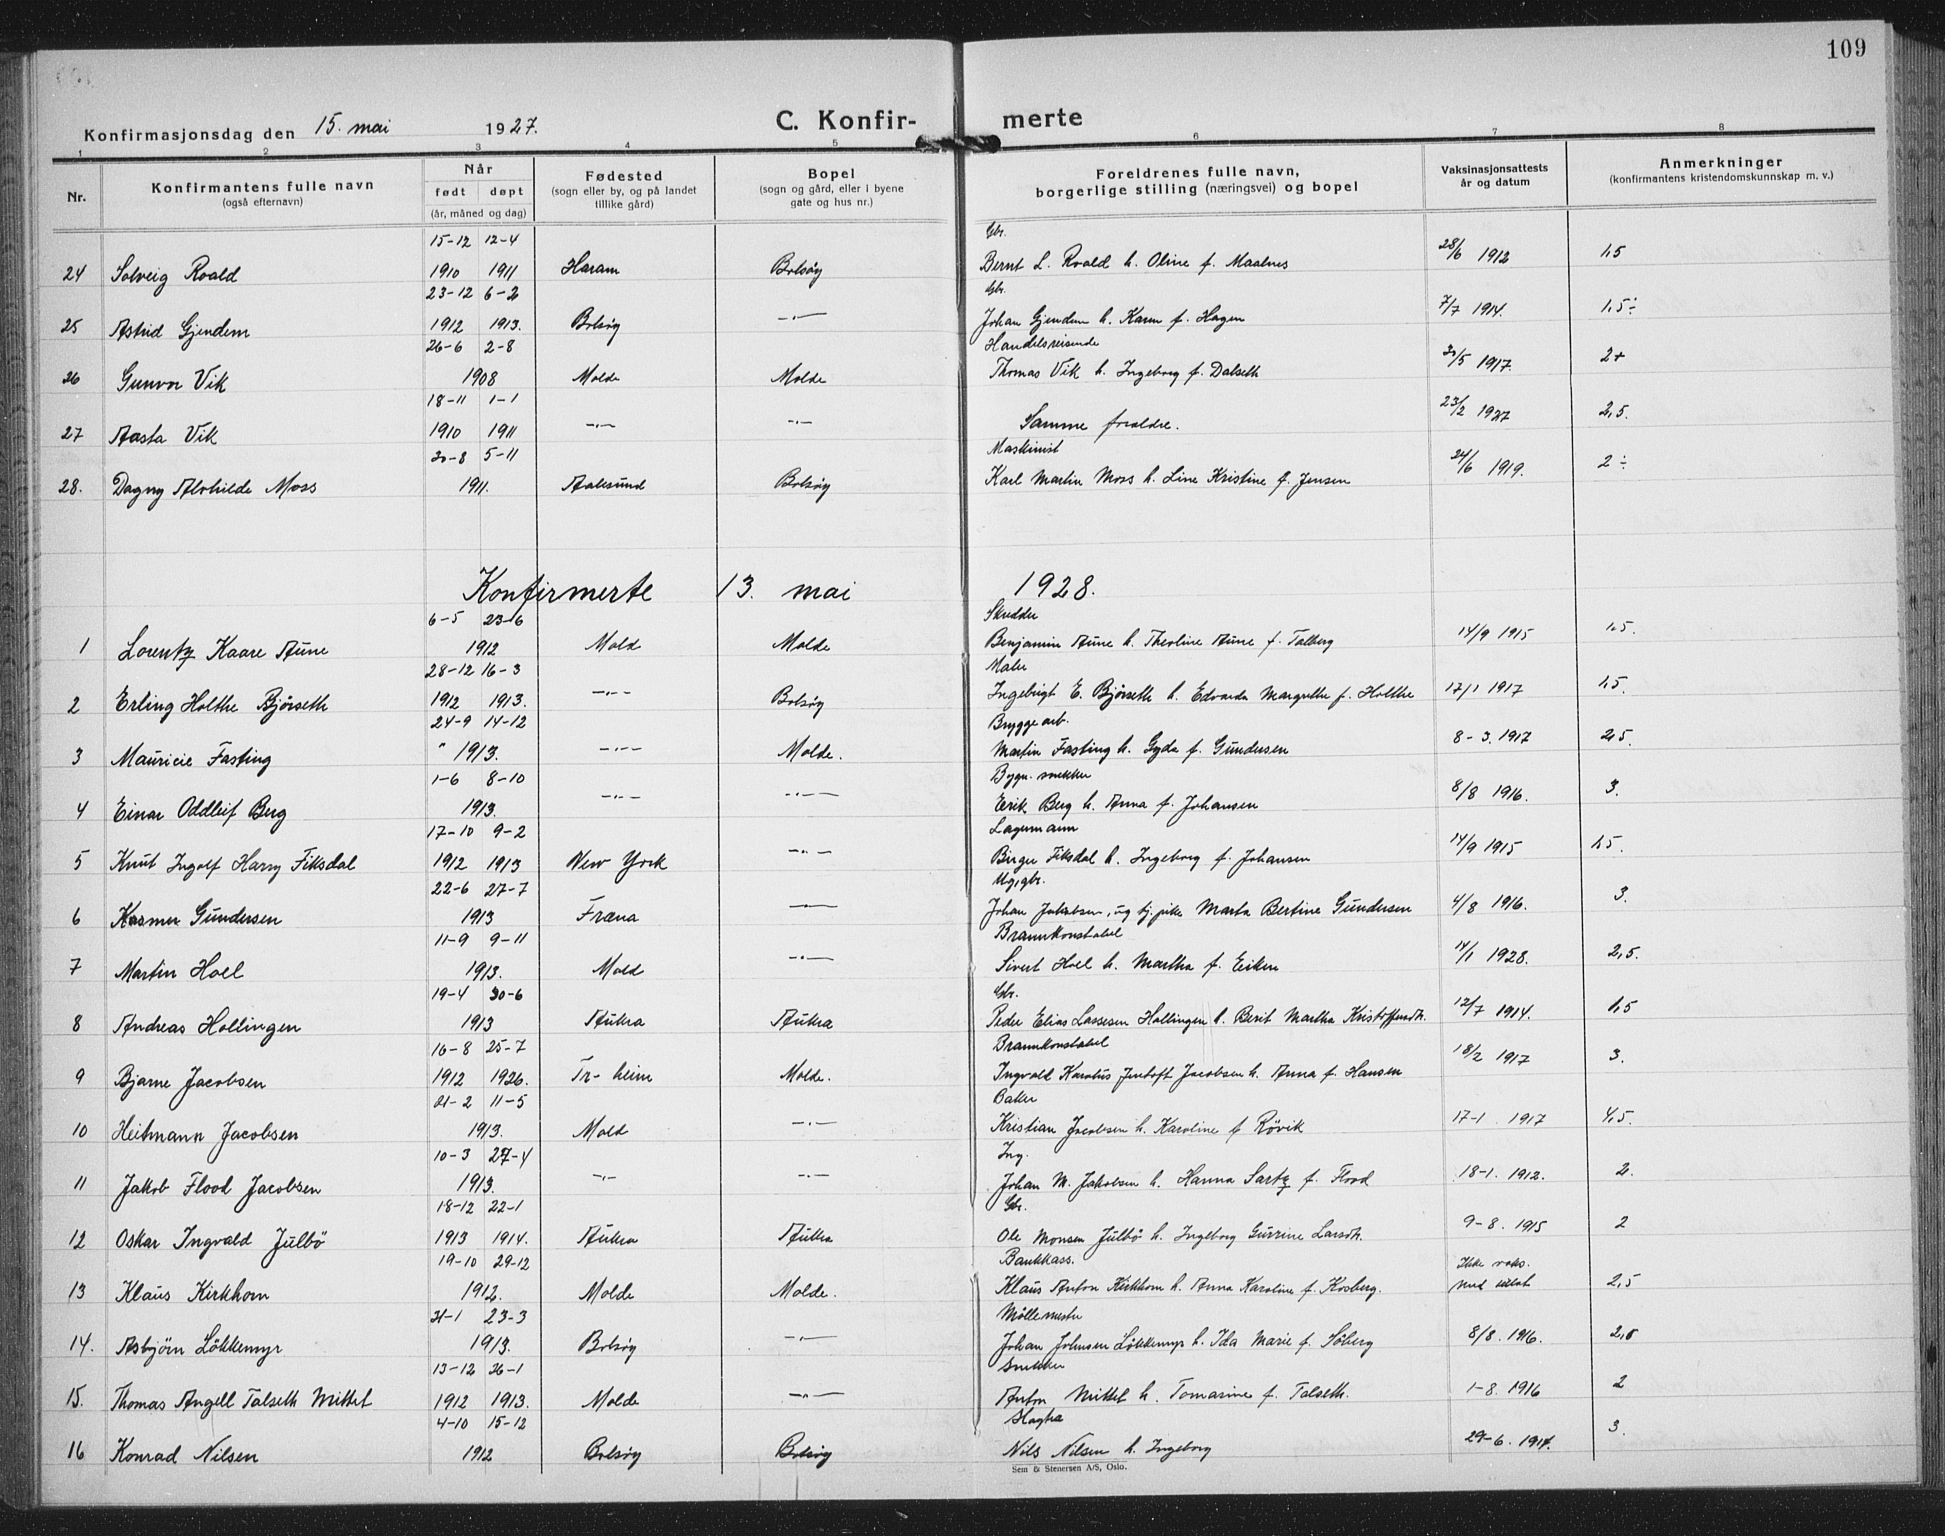 109
Konfirmasjonsdag den 15. mai 1927. C. Konfirmerte
1 2 3 4 5 6 7 8
Nr. Konfirmantens fulle navn (også efternavn) Når født døpt (år, måned og dag) Fødested (sogn eller by, og på landet tillike gård) Bopel (sogn og gård, eller i byene gate og hus nr.) Foreldrenes fulle navn, borgerlige stilling (næringsvei) og bopel Vaksinasjonsattests år og datum Anmerkninger (konfirmantens kristendomskunnskap m. v.)
15-12 12-4 Gbr.
24 Solveig Roald 1910 1911 Haram Bolsøy Bernt L. Roald h. Oline f. Maalnes 28/6 1912 1,5
23-12 6-2 Gbr.
25 Astrid Gjendem 1912 1913. Bolsøy -"- Johan Gjendem h. Karen f. Hagen 7/7 1914. 1,5÷
26-6 2-8 Handelsreisende
26 Gunvor Vik 1908 Molde Molde Thomas Vik h. Ingeborg f. Dalseth /5 1917. 2+
18-11 1-1
27 Aasta Vik 1910 1911 -"- -"- Samme foreldre. 23/2 1927 2,5.
30-8 5-11 Maskinist
28. Dagny Alvhilde Moss 1911. Aalesund Bolsøy Karl Martin Moss h. Line Kristine f. Jensen 24/6 1919. 2÷
Konfirmerte 13. mai 1928.
6-5 23-6 Skredder
1 Lorentz Kaare Aune 1912 Mold Molde Benjamin Aune h. Theoline Aune f. Talberg 14/9 1915 1.5.
28-12 16-3 Maler
2 Erling Holthe Bjørseth 1912 1913. -"- Bolsøy Ingebrigt E. Bjørseth h. Edvarda Margrethe f. Holthe 17/1 1917 1,5.
24-9 14-12 Brygge arb.
3 Mauricie Fasting " 1913. -"- Molde. Martin Fasting h. Gyda f. Gundersen 8-3. 1917 2,5.
1-6 8-10 Bygn. snekker
4 Einar Oddleif Berg 1913. -"- -"- Eerik Berg h. Anna f. Johansen 8/8 1916. 3.
17-10 9-2 Lagermann
5 Knut Ingolf Harry Fiksdal 1912 1913 New York -"- Birger Fiksdal h. Ingeborg f. Johansen 14/9 1915 1,5.
22-6 27-7 Ug, gbr.
6 Kasmer Gundersen 1913 Fræna -"- Johan Jakobsen, ug tj. pike Marta Bertine Gundersen 4/8 1916. 3.
11-9 9-11 Brannkonstabel
7 Martin Hoel 1913. Mold -"- Sivert Hoel h. Martha f. Eiken 14/1 1928. 2,5.
19-4 30-6 Gbr.
8 Andreas Hollingen 1913 Aukra Aukra Peder Elias Lassesen Hollingen h. Berit Martha Kristoffersdt. 12/7 1914. 1,5
16-8 25-7 Brannkonstabel
9 Bjarne Jacobsen 1912 1926. Tr-heim Molde. Ingvald Karolus Jentoft Jacobsen h. Anna f. Hansen 18/2 1917 3.
21-2 11-5 Baker
10 Heitmann Jacobsen 1913. Mold -"- Kristian Jacobsen h. Karoline f Røvik 17-1. 1917 4,5.
10-3 27-4 Ing.
11 Jakob Flood Jacobsen 1913. -"- -"- Johan M. Jakobsen h. Hanna Sartz f. Flood 18-1. 1912. 2.
18-12 22-1 Gbr.
12 Oskar Ingvald Julbö 1913 1914. Aukra Aukra Ole Monsen Julbö h. Ingeborg Gurrine Larsdt. 9-8. 1915 2
19-10 29-12 Bankkass. Ikke vaks.
13 Klaus Kirkhorn 1912. Molde Molde. Klaus Anton Kirkhorn h. Anna Karoline f. Kosberg. med 2,5
31-1 23-3 Möllemester
14. Asbjörn Lökkemyr 1913. Bolsøy -"- Johan Johnsen Lökkemyr h. Ida Marie f. Söberg 8/8. 1916. 2,5
13-12 26-1 Snekker
15. Thomas Angell Talseth Mittet 1912 1913. Molde -"- Anton Mittet h. Tomasine f. Talseth. 1-8. 1916 2
4-10 15-12 Slagter
16 Konrad Nilsen 1912 Bolsøy Bolsøy Nils Nilsen h. Ingeborg 29-6. 1914. 3.
Sem & Stenersen A/S, Oslo.